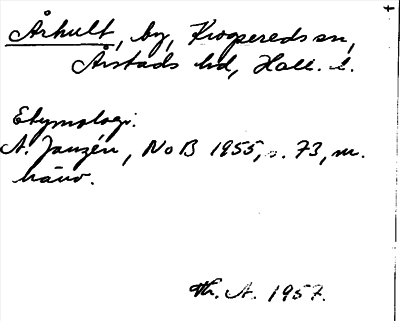 Århult, by, Krogsereds sn,
Årstads hd, Hall. l.
Etymologi.
A. Janzén, NoB 1955, s. 73, m.
hänv.
Th. A. 1957.